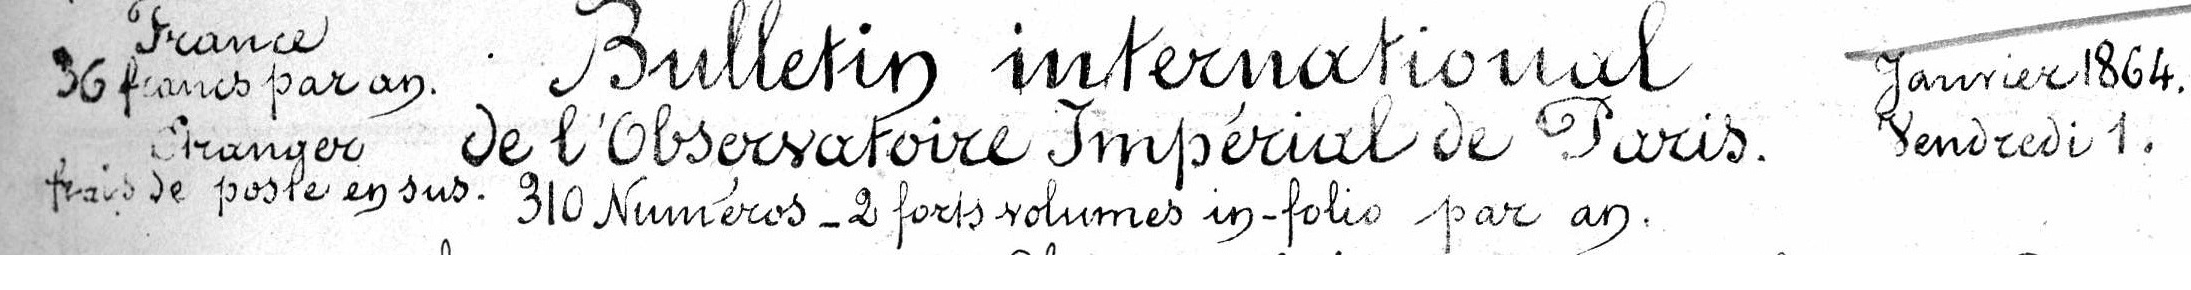 France
36 francs par an.
Etranger
frais de poste en sus.
Bulletin international
de l'Observatoire Impérial de Paris.
310 Numéros _ 2 forts volumes in-folio par an.
Janvier 1864.
Vendredi 1.